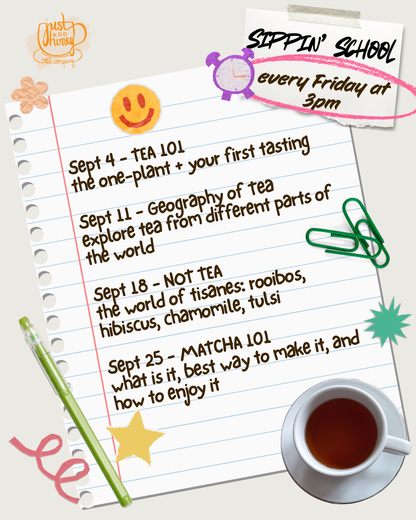 just
ADD
honey
tea company
SIPPIN' SCHOOL
every Friday at
3pm
Sept 4 - TEA 101
the one-plant + your first tasting
Sept 11 - Geography of Tea
explore tea from different parts of
the world
Sept 18 - NOT TEA
the world of tisanes: rooibos,
hibiscus, chamomile, tulsi
Sept 25 - MATCHA 101
what is it, best way to make it, and
how to enjoy it